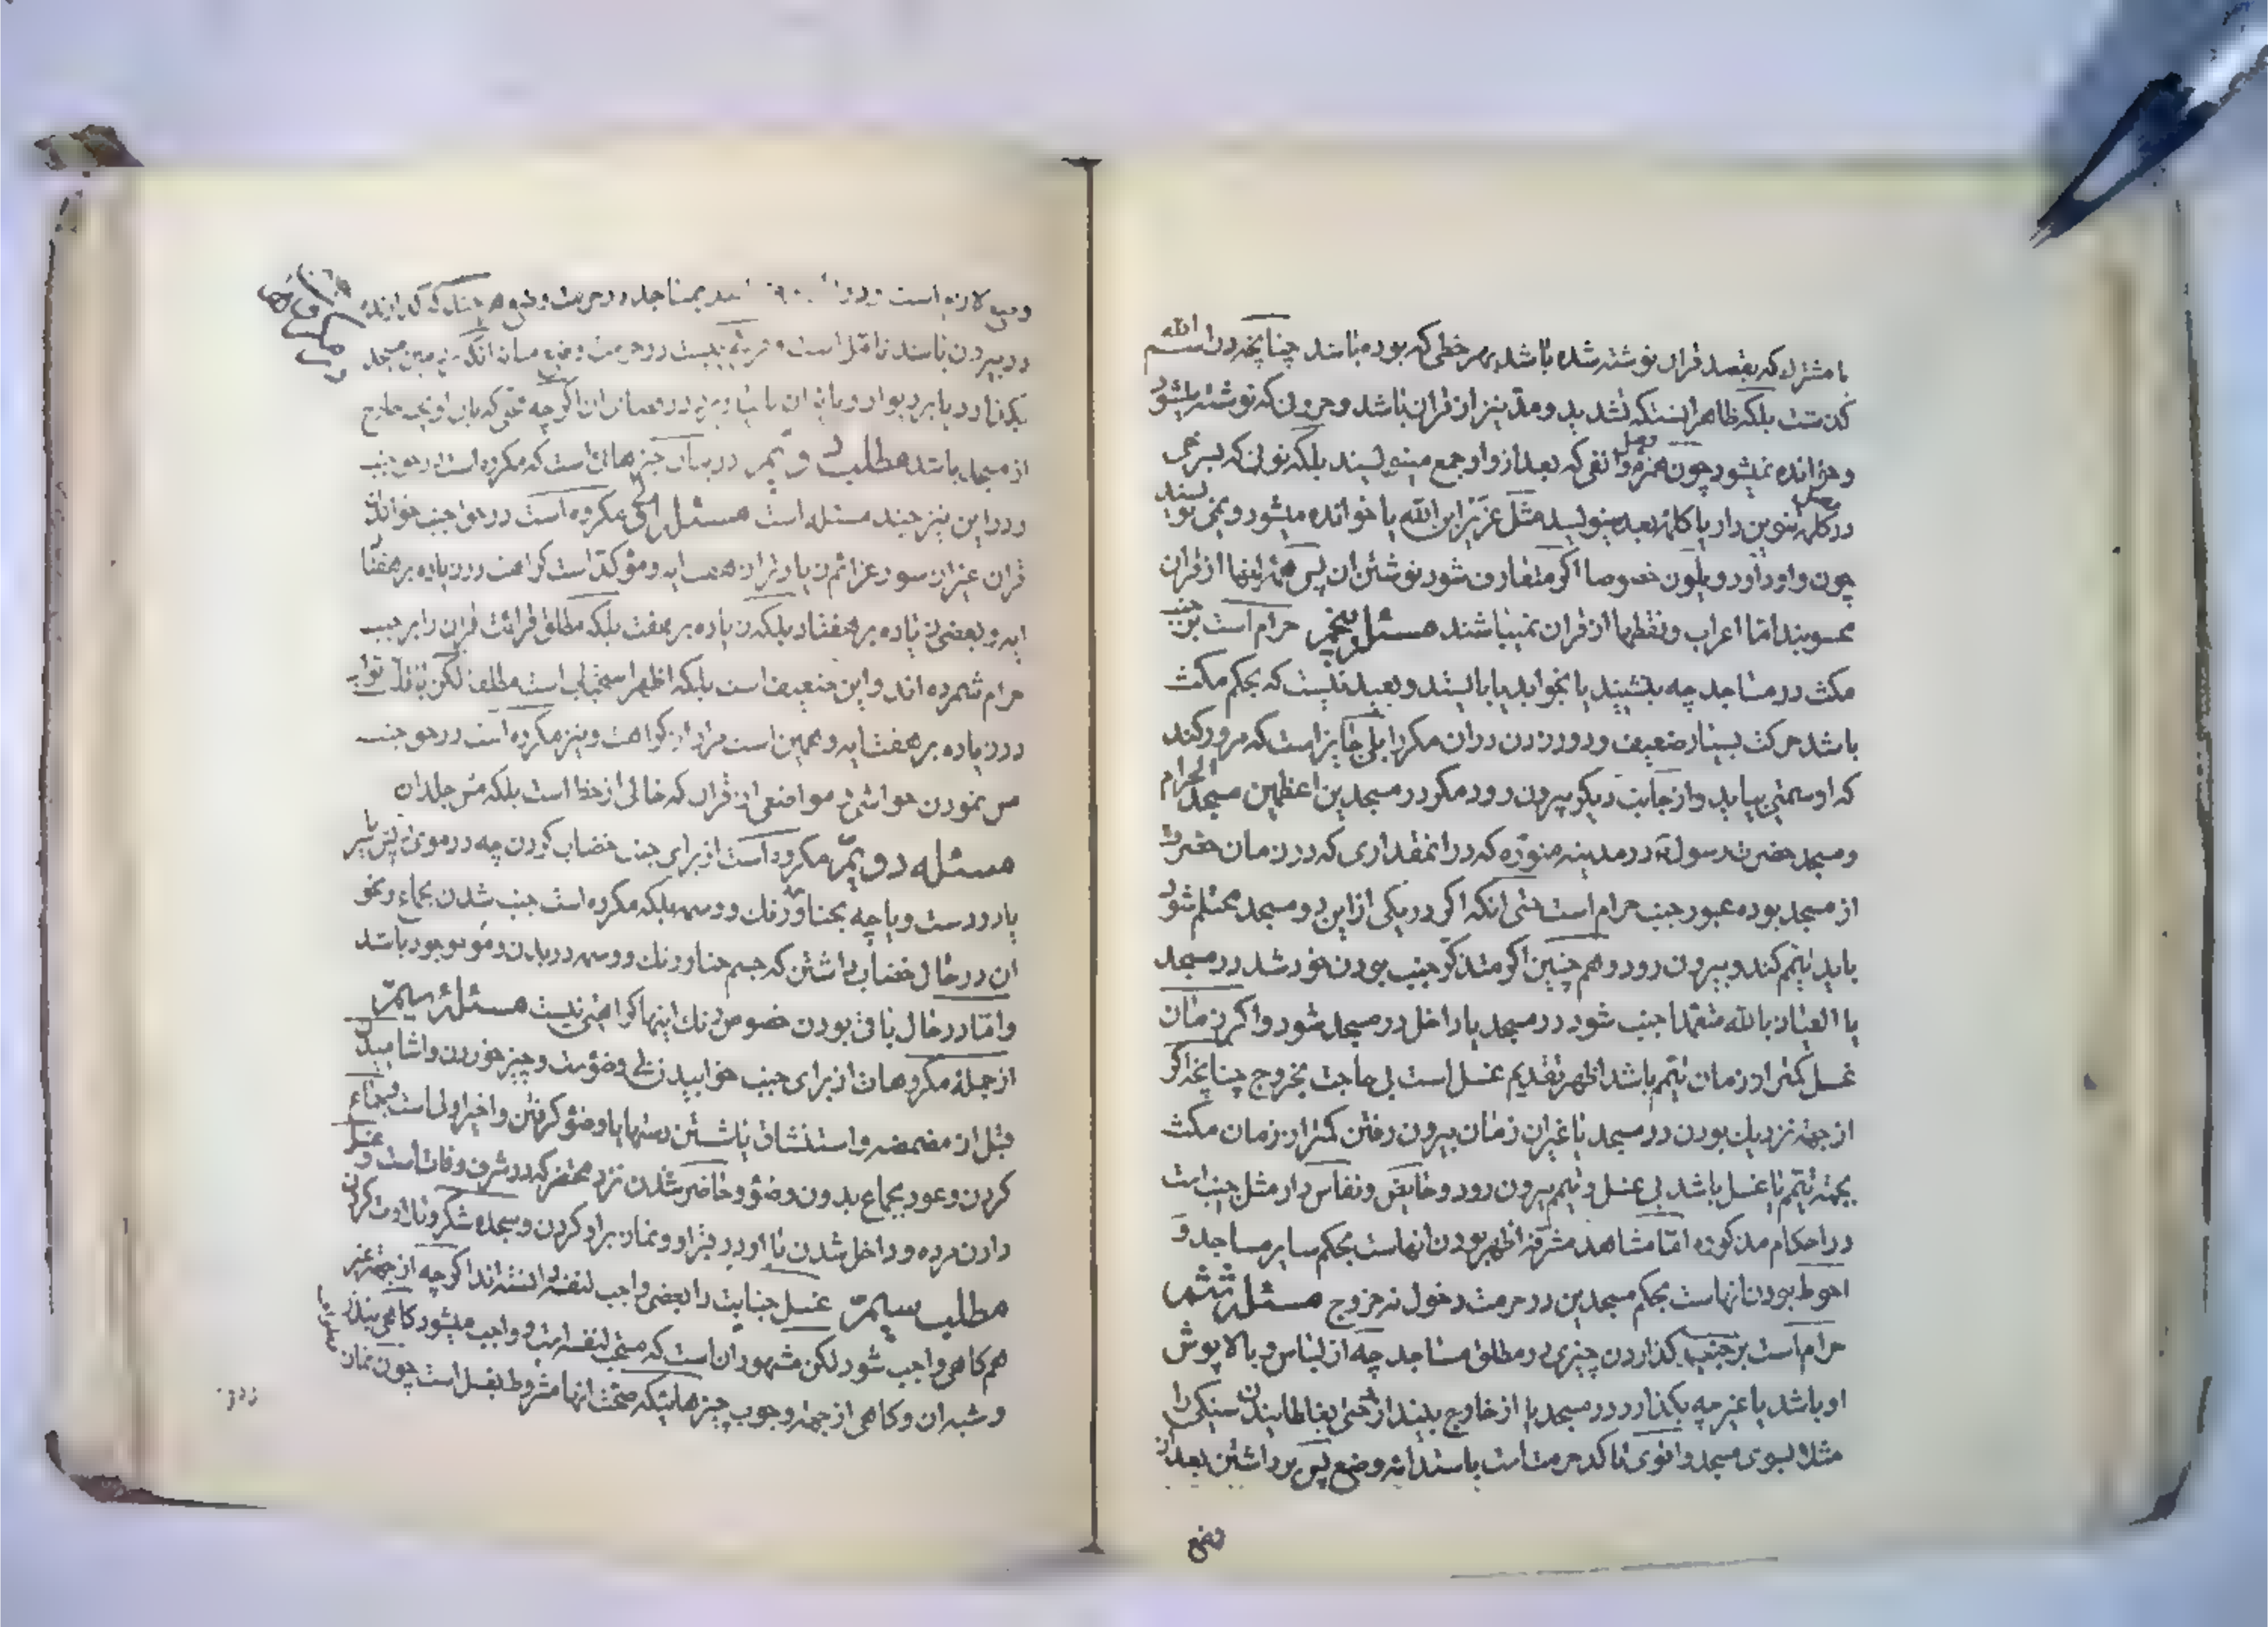 یا مشترك که بقصد قران نوشته شده باشد بهر خطی که بوده باشد چنانچه در اسم الله
کذشت بلکه ظاهر اینستکه تشدید و مد نیز از قران باشد و حروفی که نوشته میشود
و خوانده نمیشود چون همزه وصل و الفی که بعد از واو جمع مینویسند بلکه نونی که بسرخی
در کلمه تنوین دار یا کلمه بعد مینویسند مثل عزیز ابن الله یا خوانده میشود و نمی نویسند
چون واو داود و یلون خصوصا اکر متعارف شود نوشتن ان پس همه اینها از قران
محسوبند اما اعراب و نقطها از قران نمیباشند مسئله پنجم حرام است بر جنب
مکث در مساجد چه بنشیند یا بخوابد یا بایستد و بعید نیست که بحکم مکث
باشد حرکت بسیار ضعیف و دور زدن در ان مکررا بلی جایز است که مرور کند
که از سمتی بیاید و از جانب دیکر بیرون رود مکر در مسجدین اعظمین مسجد الحرام
و مسجد حضرت رسول در مدینه منوره که در انمقداری که در زمان حضرت
از مسجد بوده عبور جنب حرام است حتی انکه اکر در یکی از این دو مسجد محتلم شود
باید تیمم کند و بیرون رود و هم چنین اکر متذکر جنب بودن خود شد در مسجد
یا العیاذ بالله متعمدا جنب شود در مسجد یا داخل در مسجد شود و اکر زمان
غسل کمتر از زمان تیمم باشد اظهر تقدیم غسل است بی حاجت بخروج چنانچه اکر
از جهة نزدیك بودن در مسجد یا غیر ان زمان بیرون رفتن کمتر از زمان مکث
بجهة تیمم یا غسل باشد بی غسل و تیمم بیرون رود و حایض و نفاس دار مثل جنب است
در احکام مذکوره اما مشاهد مشرفه اظهر بودن انهاست بحکم سایر مساجد و
احوط بودن انهاست بحکم مسجدین در حرمت دخول نه خروج مسئله ششم
حرام است بر جنب کذاردن چیزی در مطلق مساجد چه از لباس و بالا پوش
او باشد یا غیر چه بکذارد در مسجد یا از خارج بیندازد حتی بغلطانیدن سنکی را
مثلا بسوی مسجد و اقوی تاکد حرمت است باستدامه وضع پس برداشتن بعد از
وضع
وضع لازم است
در بیرون باشد تامل است و در حرمت وضع میان انکه بزمین مسجد
بکذارد یا بر دیوار و بام ان یا
از مسجد باشد مطلب دویم در بیان چیزهائی است که مکروه است در حق جنب
و در این نیز چند مسئله است مسئله اولی مکروه است در حق جنب خواندن
قران غیر از سور عزائم زیاد تر از هفت ایه و مؤکد است کراهت در زیاده بر هفتاد
ایه و بعضی زیاده بر هفتاد بلکه زیاده بر هفت بلکه مطلق قرائت قران را بر جنب
حرام شمرده اند و این ضعیف است بلکه اظهر استحباب است مطلقا لکن باقل ثواب
در زیاده بر هفت ایه و همین است مراد از کراهت و نیز مکروه است در حق جنب
مس نمودن حواشی و مواضعی از قران که خالی از خط است بلکه مس جلد ان
مسئله دویم مکروه است از برای جنب خضاب کردن چه در موی ریش یا سر
یا در دست و پا چه بحنا و رنك و وسمه بلکه مکروه است جنب شدن بجماع و نحو
ان در حال خضاب داشتن که جسم حنا و رنك و وسمه در بدن و مو موجود باشد
و اما در حال باقی بودن خصوص رنك اینها کراهتی نیست مسئله سیم
از جمله مکروهات از برای جنب خوابیدن بی وضوست و چیز خوردن و اشامیدن
قبل از مضمضه و استنشاق یا شستن دستها یا وضو کرفتن و اخیر اولی است و جماع
کردن و عود بجماع بدون وضو و حاضر شدن نزد محتضر که در شرف وفات است و غسل
دادن مرده و داخل شدن با او در قبر او و نماز بر او کردن و سجده شکر و تلاوت کردن
مطلب سیم غسل جنابت را بعضی واجب لنفسه دانسته اند اکر چه از جهة غیر
هم کاهی واجب شود لکن مشهور ان است که مستحب لنفسه است و واجب میشود کاهی بنذر
و شبه ان و کاهی از جهة وجوب چیزهائیکه صحت انها مشروط بغسل است چون نماز